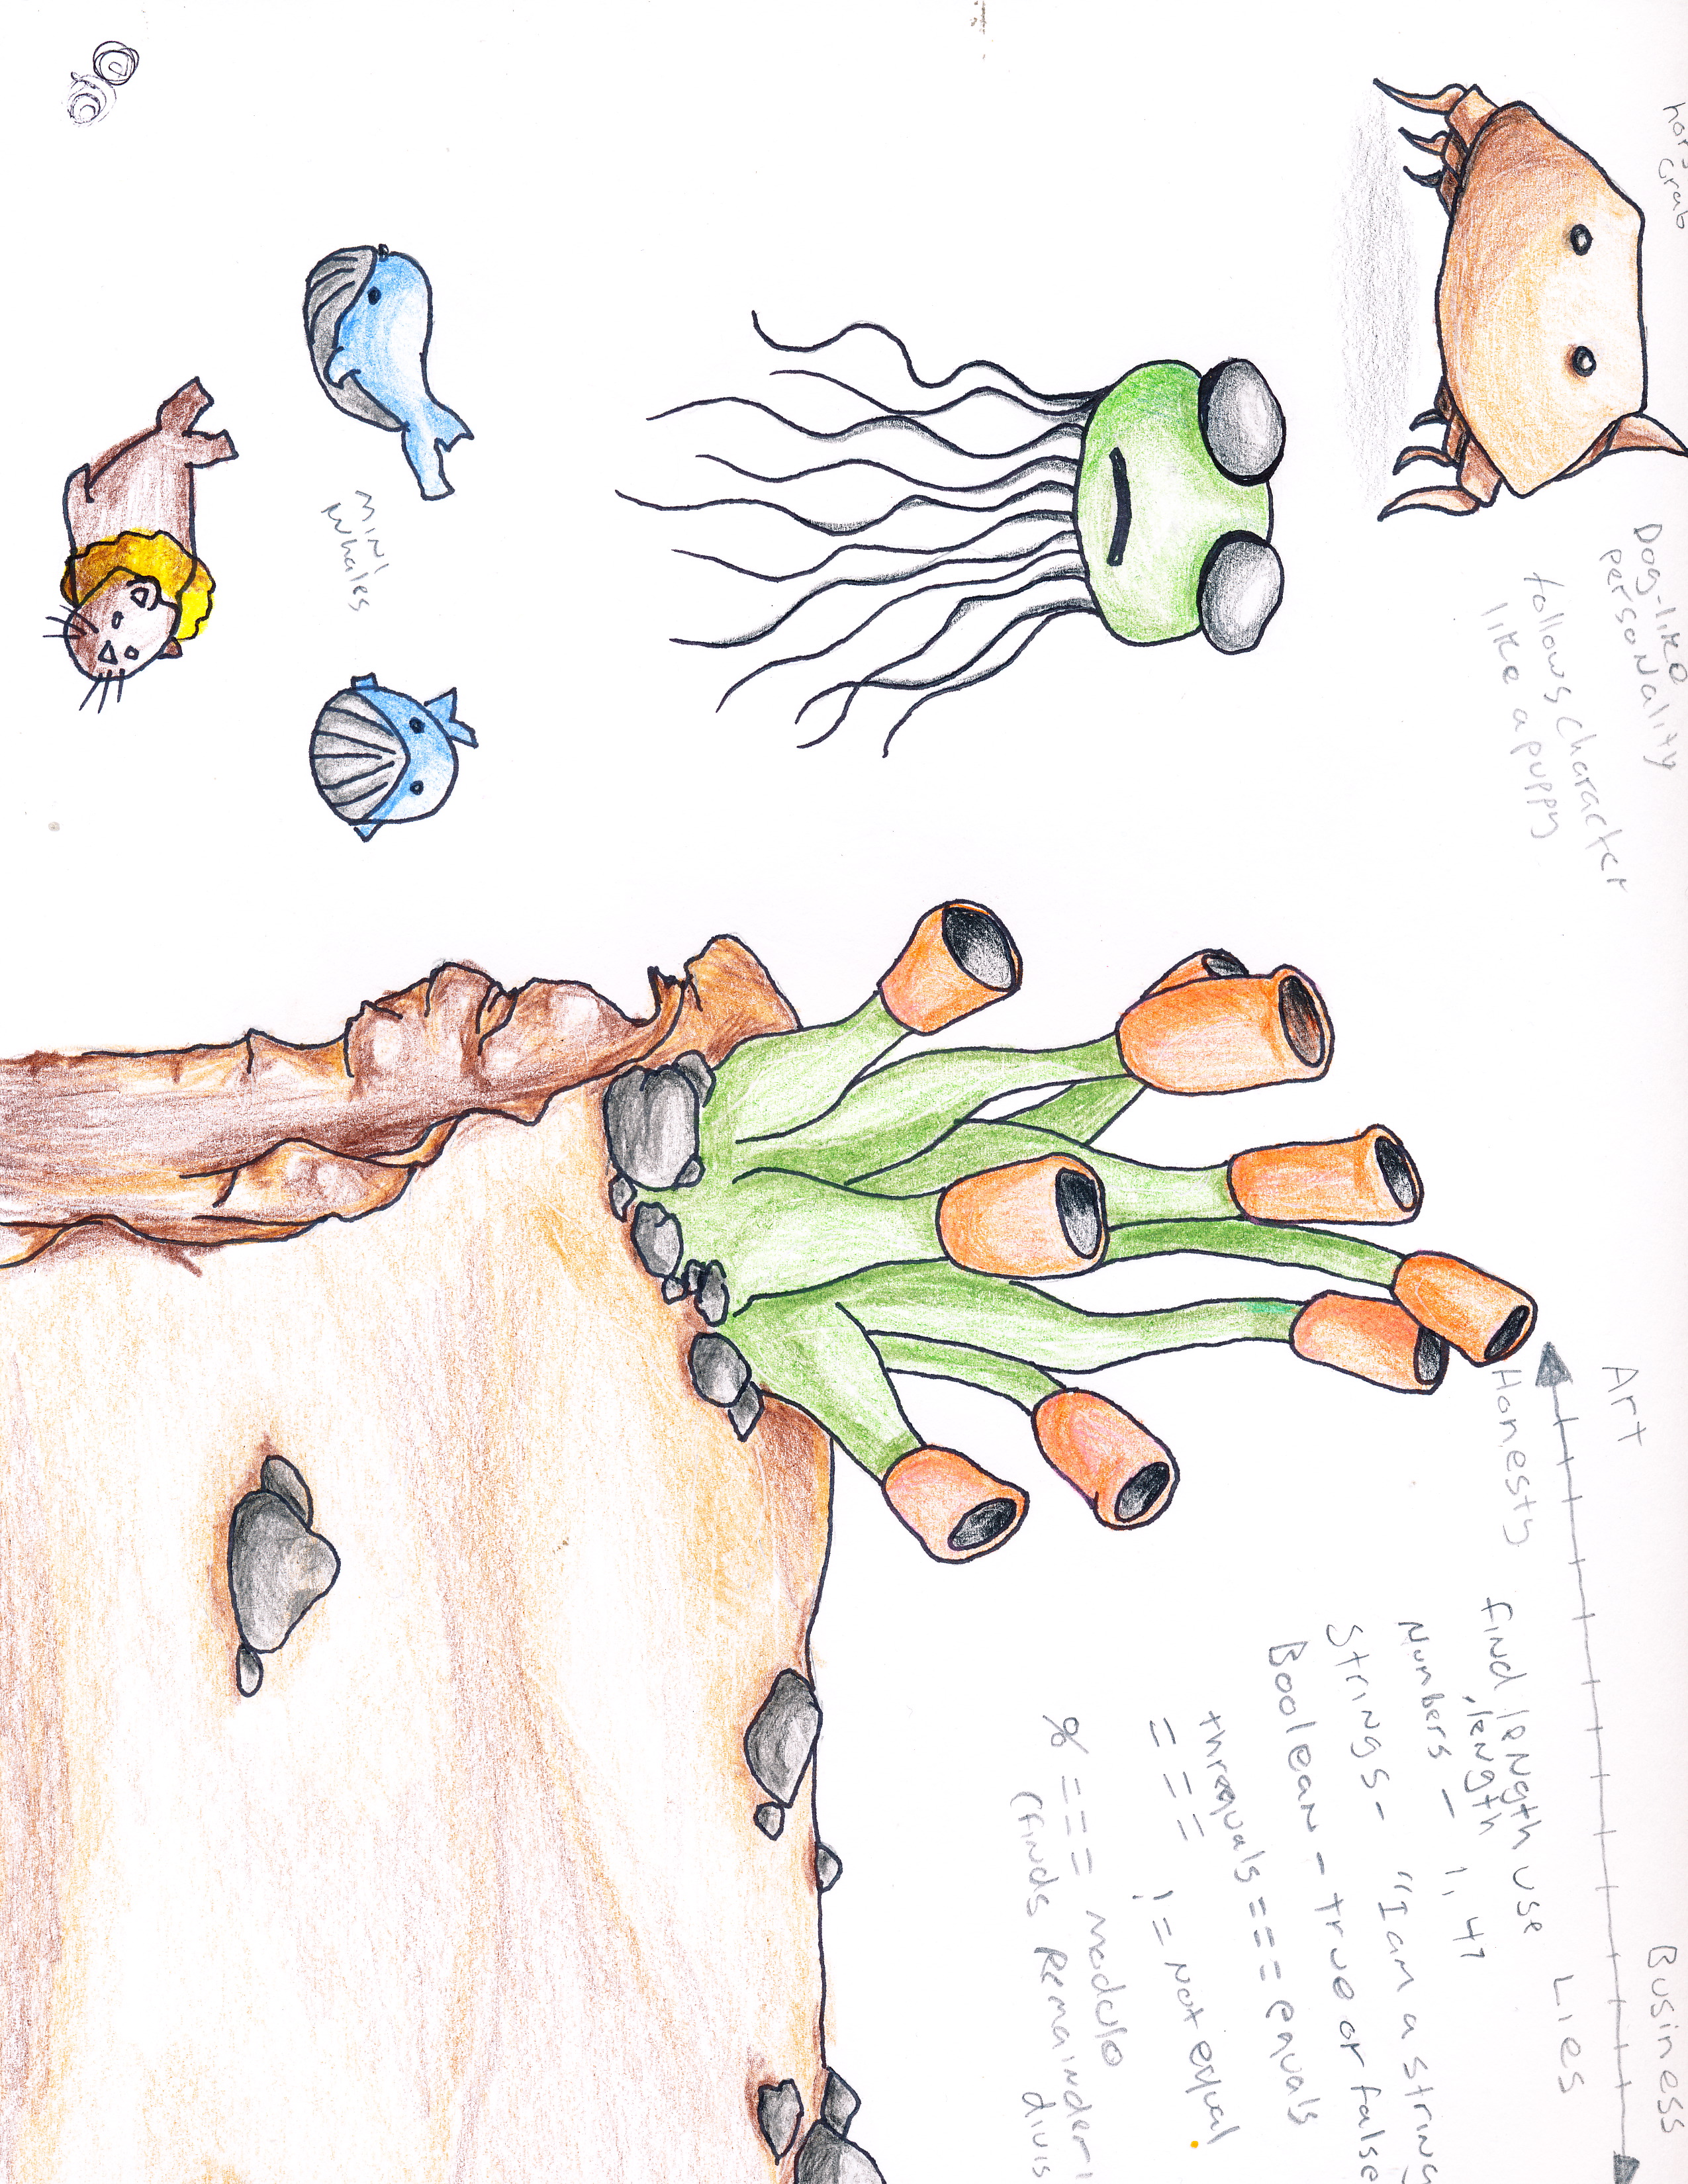 Crab
Dog-like
personality
follows character
like a puppy
mini
whales
Art
Business
Honesty
Lies
find length use
.length
Numbers - 1, 47
Strings - "I am a string
Boolean - true or false
threquals === equals
=== != not equal
% === modulo
(finds remainder